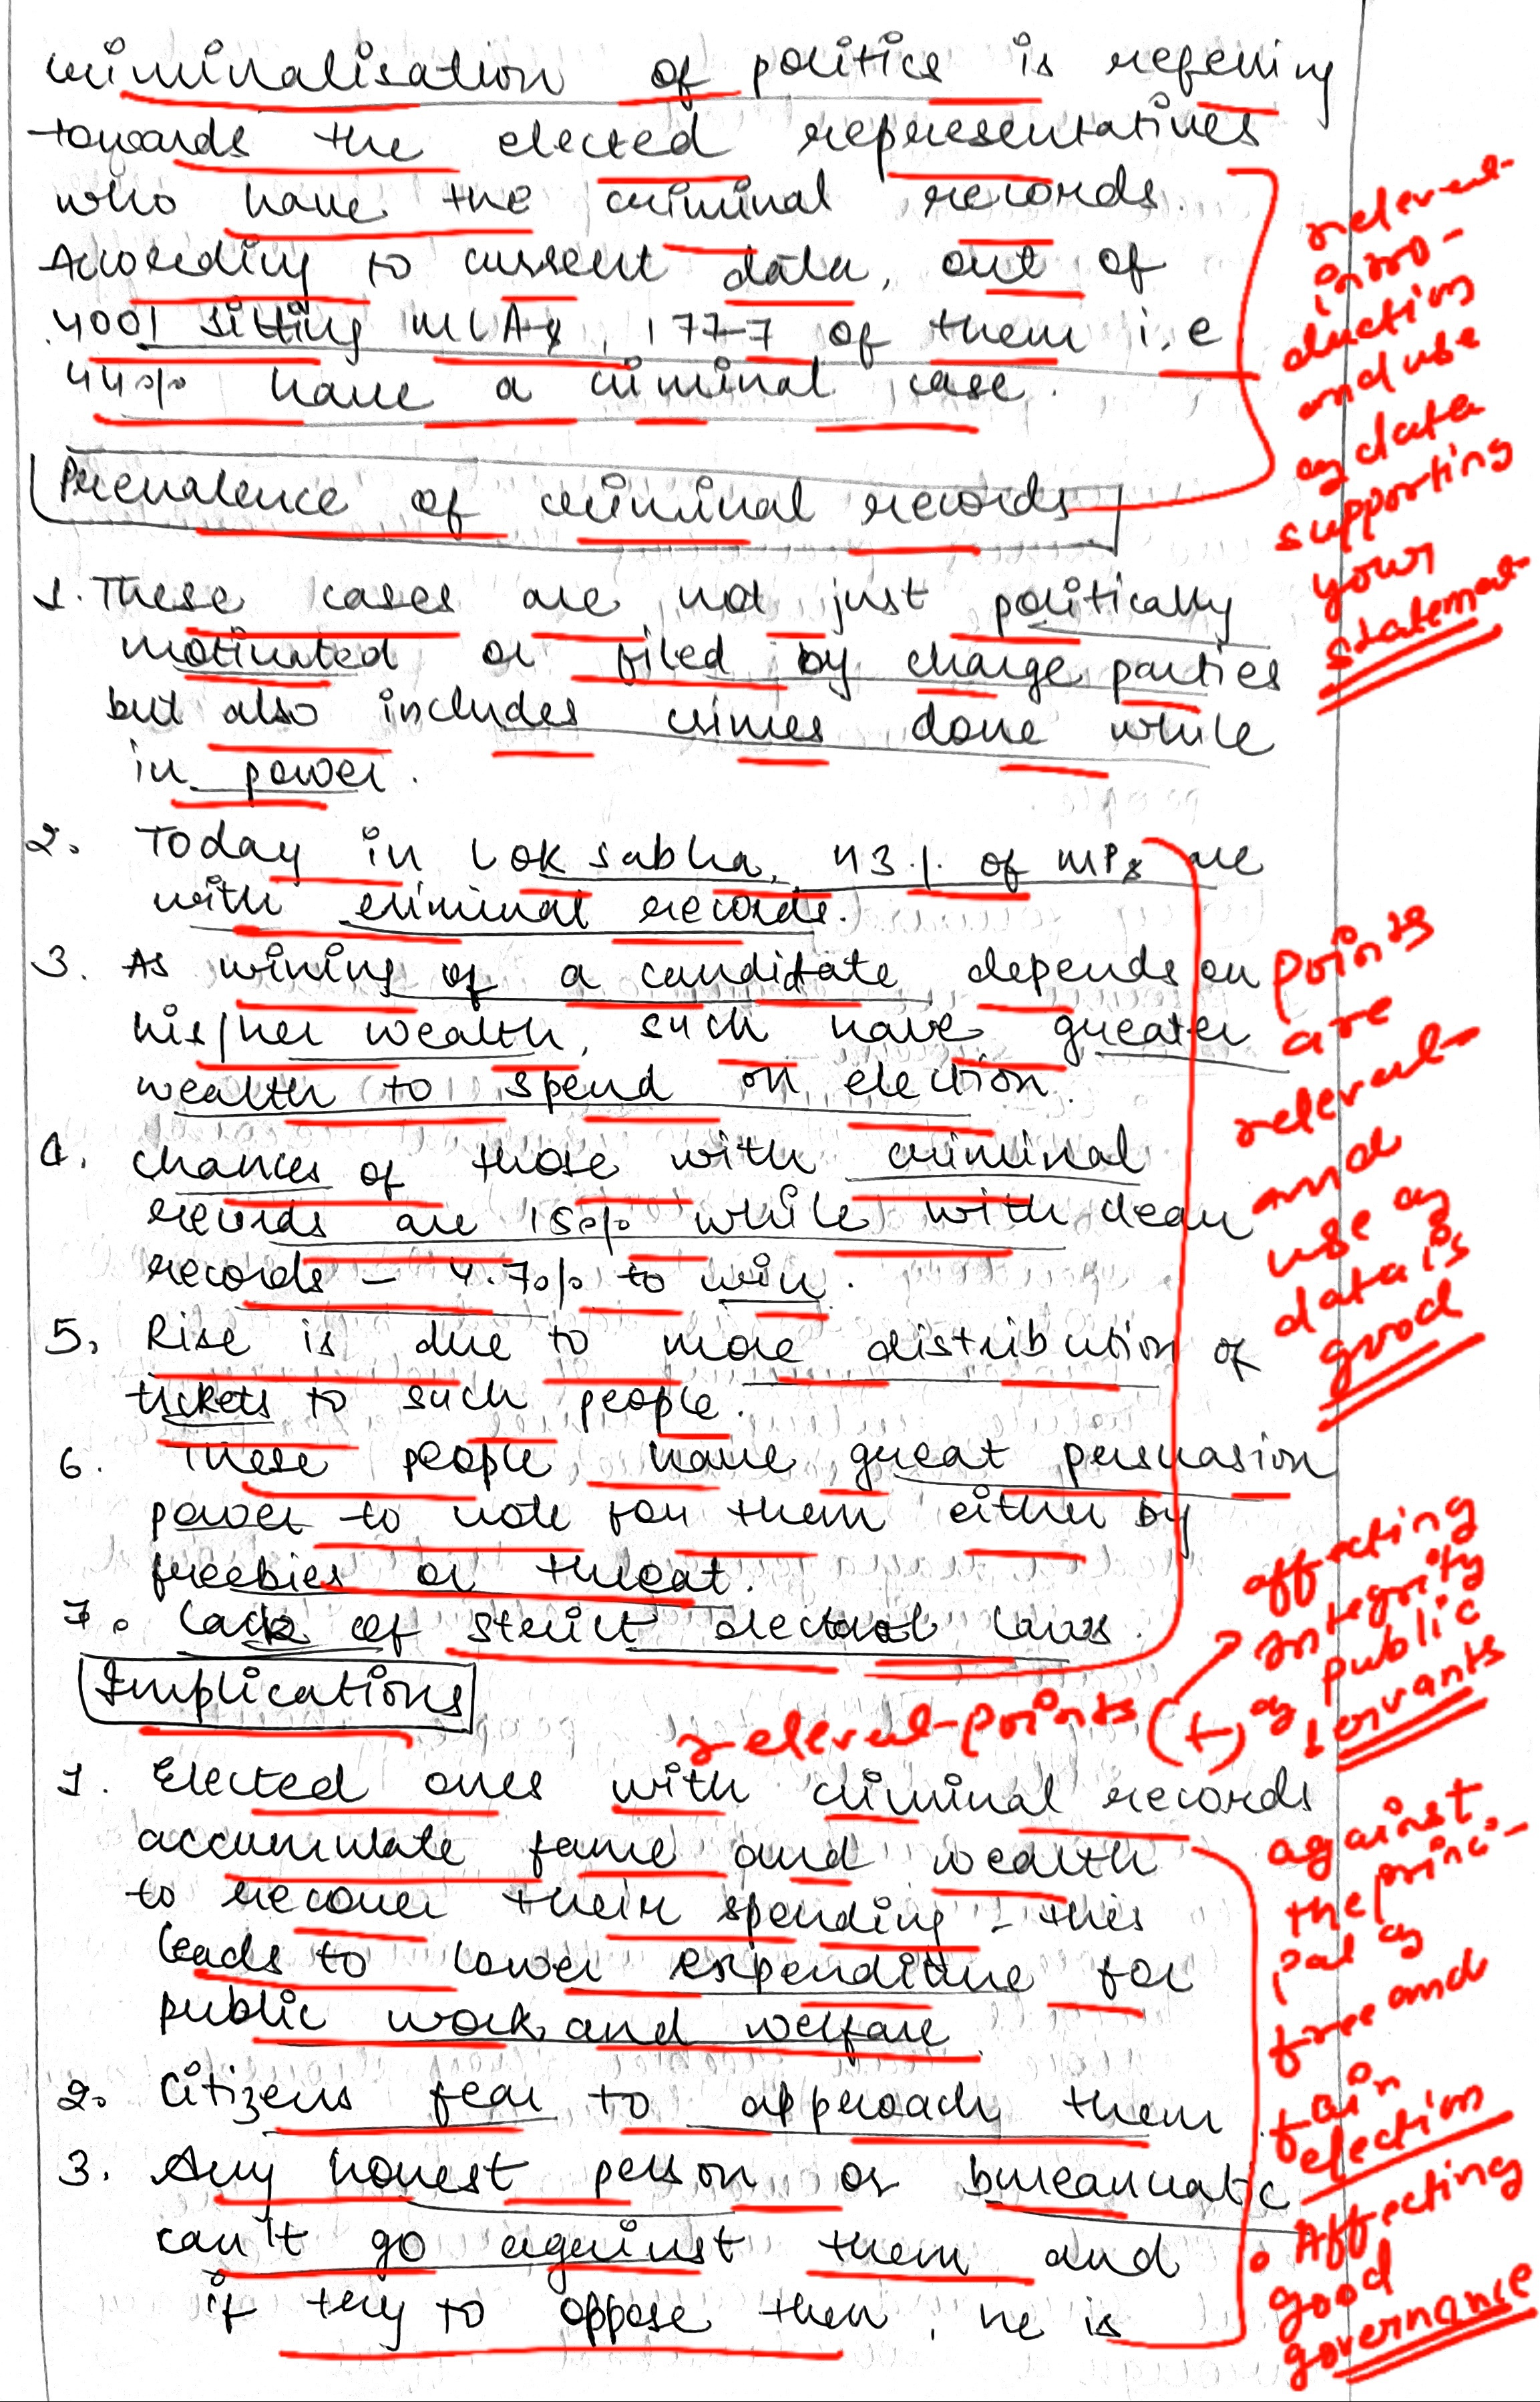 Criminalisation of politics is refering
towards the elected representatives
who have the criminal records.
According to current data, out of
4001 sitting MLAs, 1777 of them i.e
44% have a criminal case.
relevent
intro-
duction
and use
of data
supporting
your
statement
Prevalence of criminal records
1. These cases are not just politically
motivated or filed by charge parties
but also includes crimes done while
in power.
2. Today in Lok Sabha, 43% of MPs are
with criminal records.
3. As wining of a candidate depends on
his/her wealth, such have greater
wealth to spend on election.
4. Chances of those with criminal
records are 15% while with clean
records - 4.7% to win.
5. Rise is due to more distribution of
tickets to such people.
6. These people have great persuasion
power to vote for them either by
freebies or threat.
7. Lack of strict electoral laws.
points
are
relevent
and
use of
data is
good
Implications
relevent points (+)
affecting
integrity
of public
servants
1. Elected ones with criminal records
accumulate fame and wealth
to recover their spending - this
leads to lower expenditure for
public work and welfare
2. Citizens fear to approach them.
3. Any honest person or bureaucratic
can't go against them and
if try to oppose then, he is
against
the princi-
pal of
free and
fair
election
• Affecting
good
governance